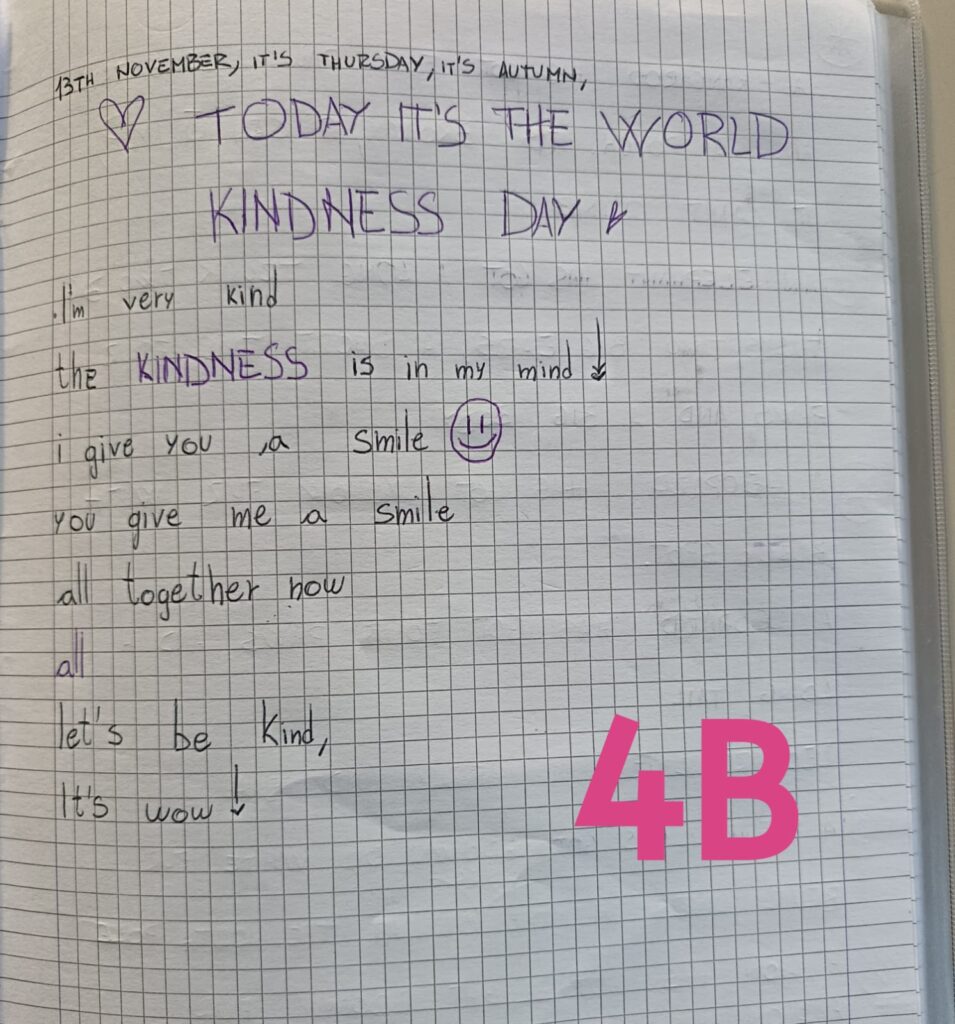 13TH NOVEMBER, IT'S THURSDAY, IT'S AUTUMN,
TODAY IT'S THE WORLD
KINDNESS DAY
.I'm very kind
the KINDNESS is in my mind
i give you a smile
you give me a smile
all together now
all
let's be kind,
It's wow
4B